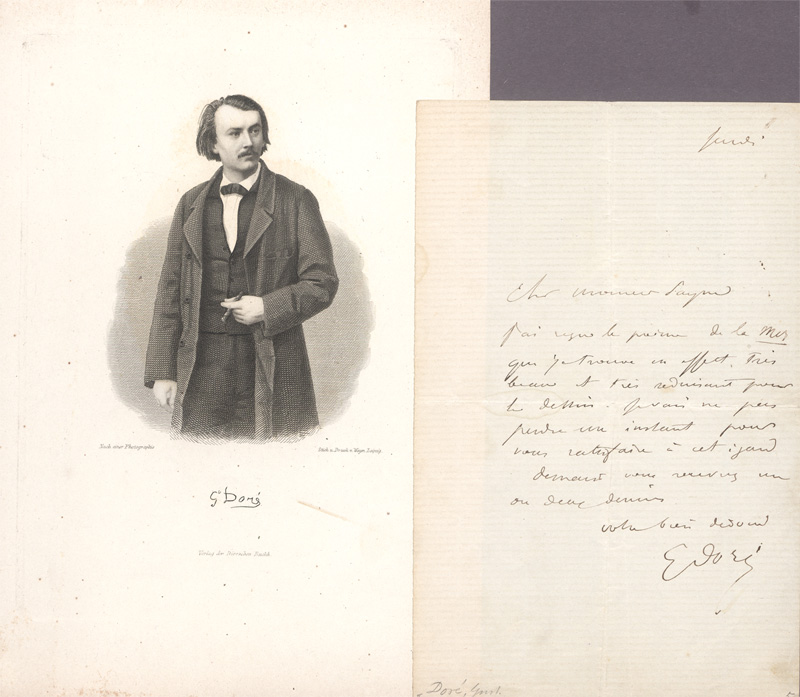 Nach einer Photographie
Stich u. Druck v. Weger, Leipzig
Gve Doré
Verlag der Dürr'schen Buchh.
Jeudi
Cher monsieur
J'ai reçu le poème de la Mer
que je trouve en effet. Très
beau et très séduisant pour
le dessin. Je vais ne pas
perdre un instant pour
vous satisfaire à cet égard
demain vous recevrez un
ou deux dessins
votre bien dévoué
G Doré
Doré, Gust.